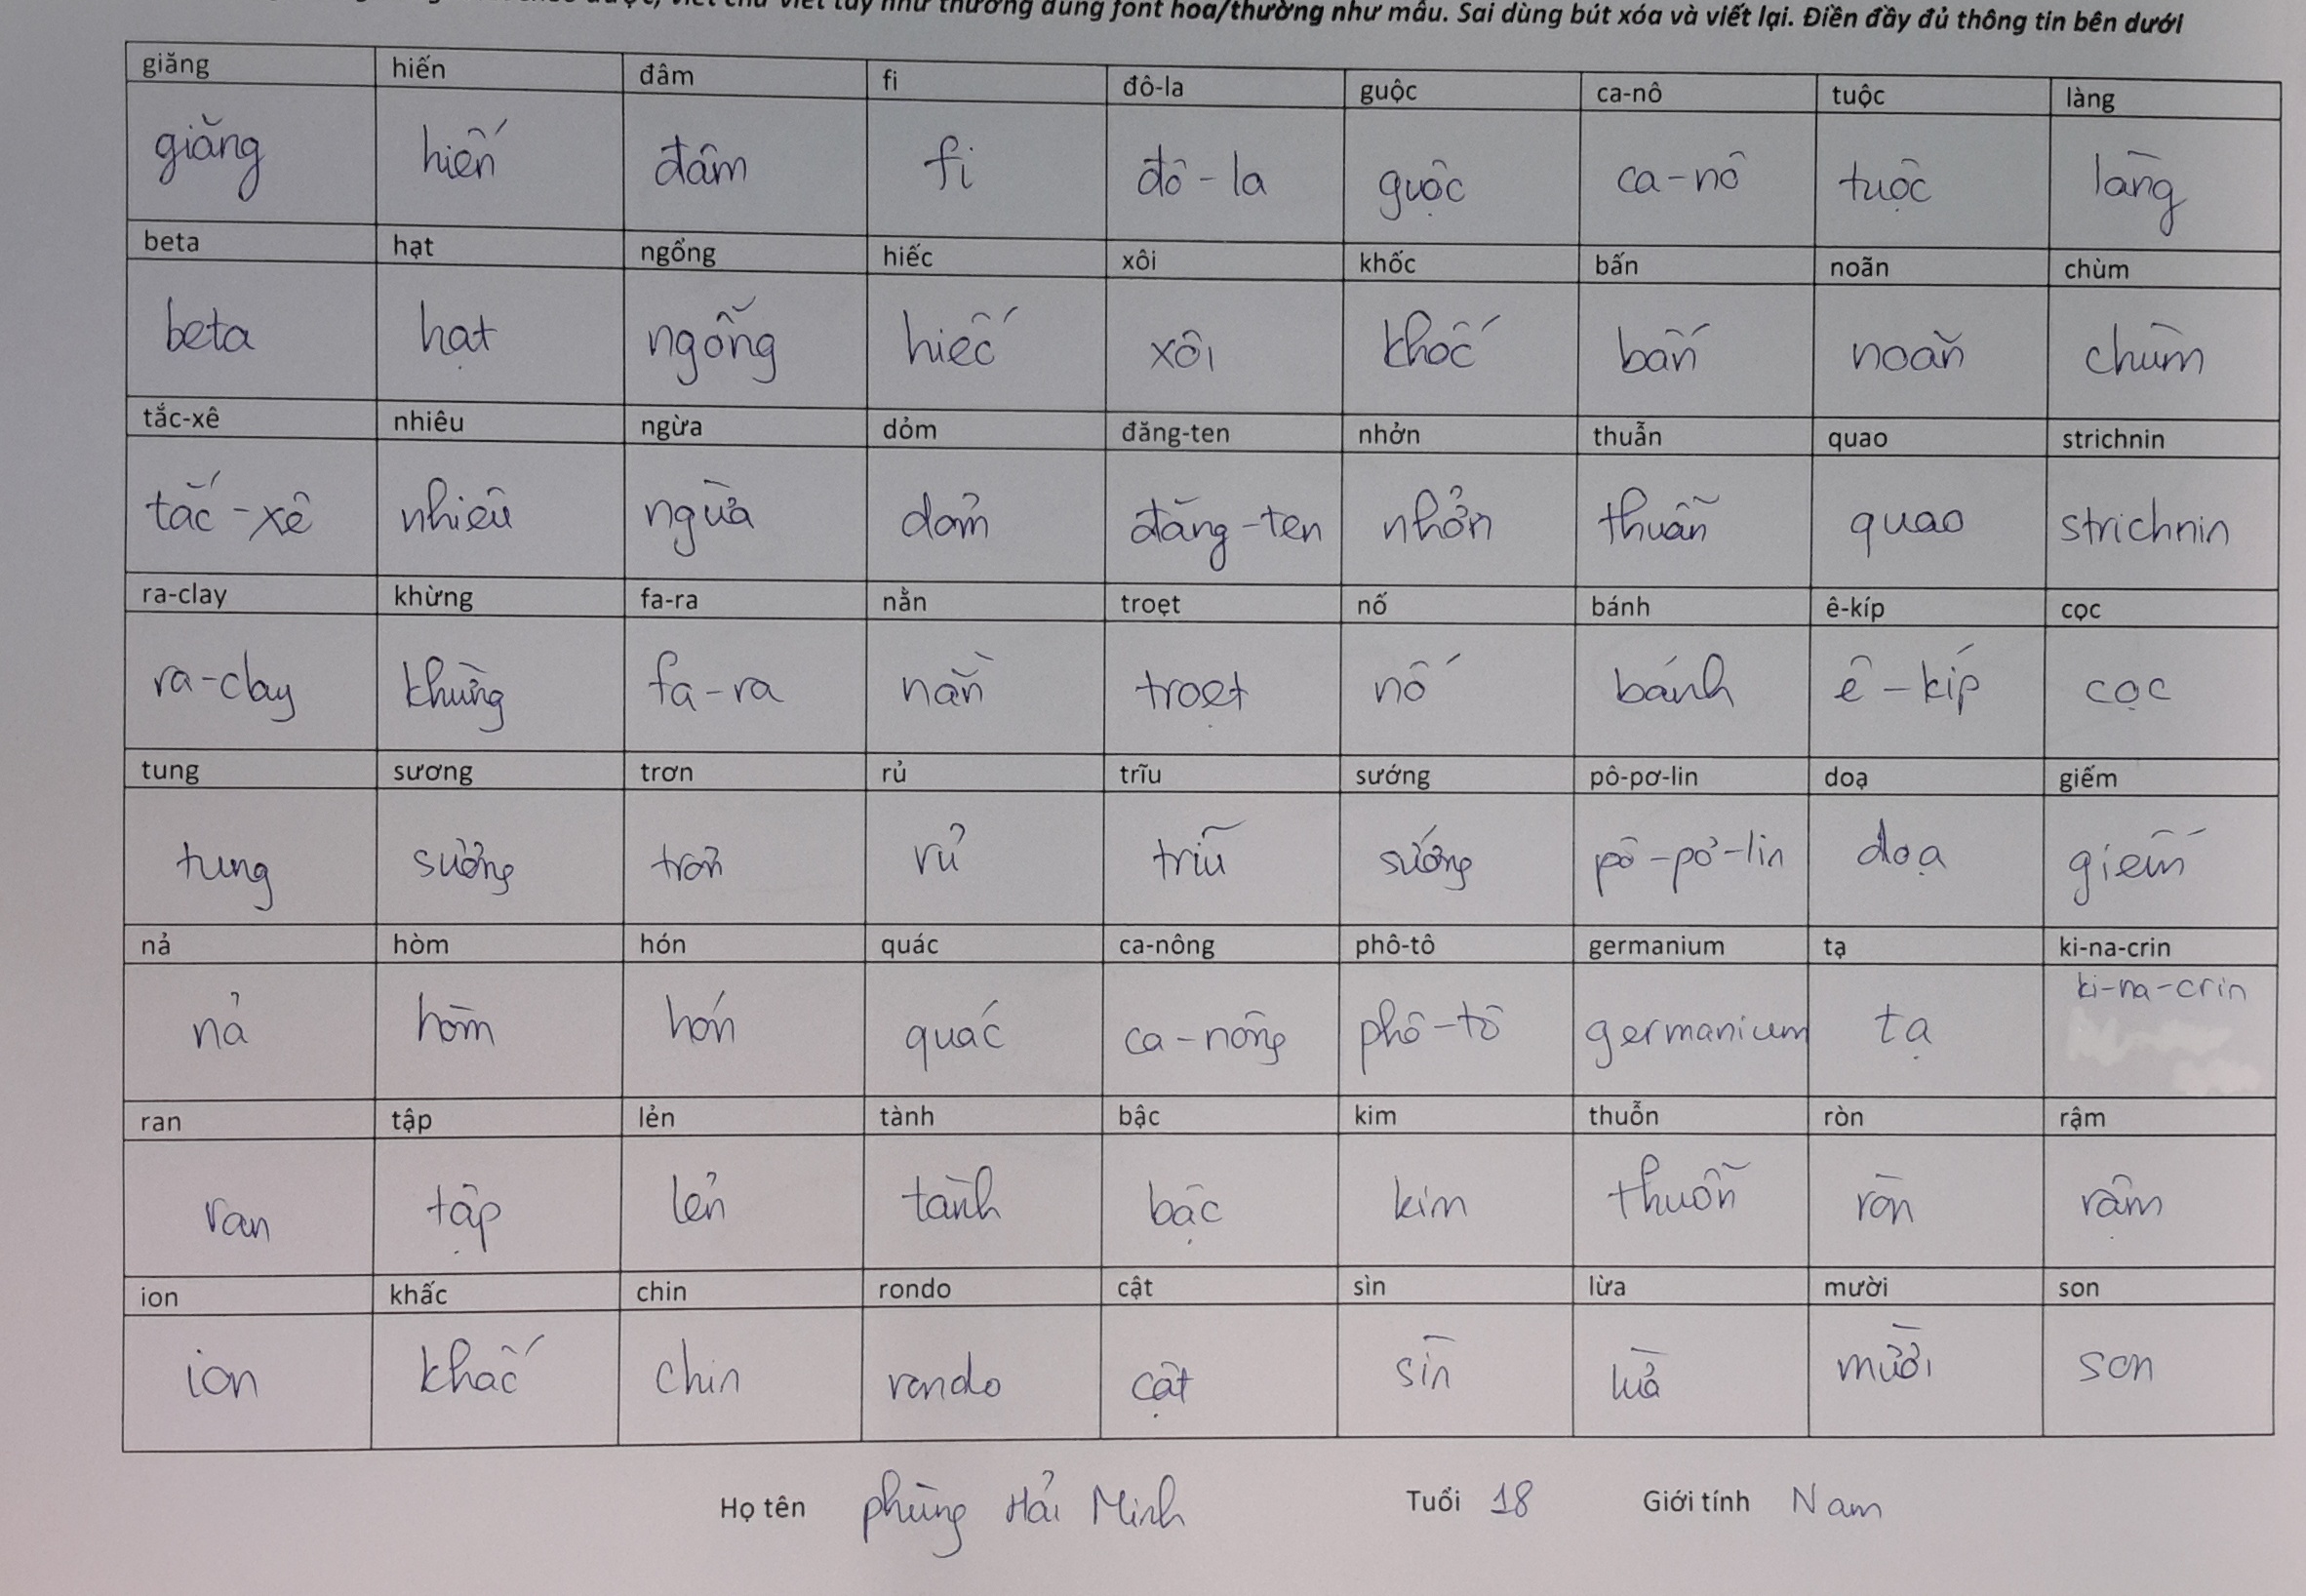 viết chữ viết tay như thường dùng font hoa/thường như mẫu. Sai dùng bút xóa và viết lại. Điền đầy đủ thông tin bên dưới
giăng hiến đâm fi đô-la guộc ca-nô tuộc làng
giăng hiến đâm fi đô-la guộc ca-nô tuộc làng
beta hạt ngổng hiếc xôi khốc bấn noãn chùm
beta hạt ngỗng hiếc xôi khốc bấn noãn chùm
tắc-xê nhiêu ngừa dỏm đăng-ten nhởn thuẫn quao strichnin
tắc-xê nhiêu ngừa dỏm đăng-ten nhởn thuẫn quao strichnin
ra-clay khừng fa-ra nằn troẹt nố bánh ê-kíp cọc
ra-clay khừng fa-ra nằn troẹt nố bánh ê-kíp cọc
tung sương trơn rủ trĩu sướng pô-pơ-lin doạ giếm
tung sương trơn rủ trĩu sướng pô-pơ-lin doạ giếm
nả hòm hón quác ca-nông phô-tô germanium tạ ki-na-crin
nả hòm hón quác ca-nông phô-tô germanium tạ ki-na-crin
ran tập lẻn tành bậc kim thuỗn ròn rậm
ran tập lẻn tành bậc kim thuỗn ròn rậm
ion khấc chin rondo cật sìn lừa mười son
ion khấc chin rondo cật sìn lừa mười son
Họ tên phùng Hải Minh Tuổi 18 Giới tính Nam